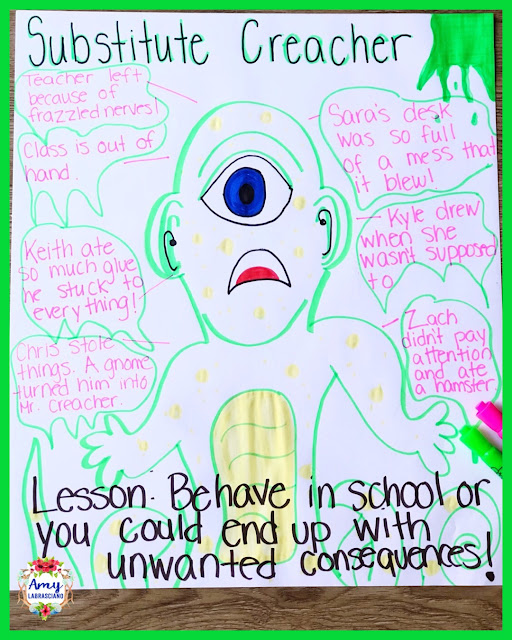 Substitute Creacher
Teacher left
because of
frazzled nerves!
Class is out of
hand.
Keith ate
so much glue
he stuck to
everything!
Chris stole
things. A gnome
turned him into
Mr. Creacher.
Sara's desk
was so full
of a mess that
it blew!
Kyle drew
when she
wasnt supposed
to.
Zach
didn't pay
attention
and ate
a hamster.
Lesson: Behave in school or
you could end up with
unwanted consequences!
Amy
LABRASCIANO